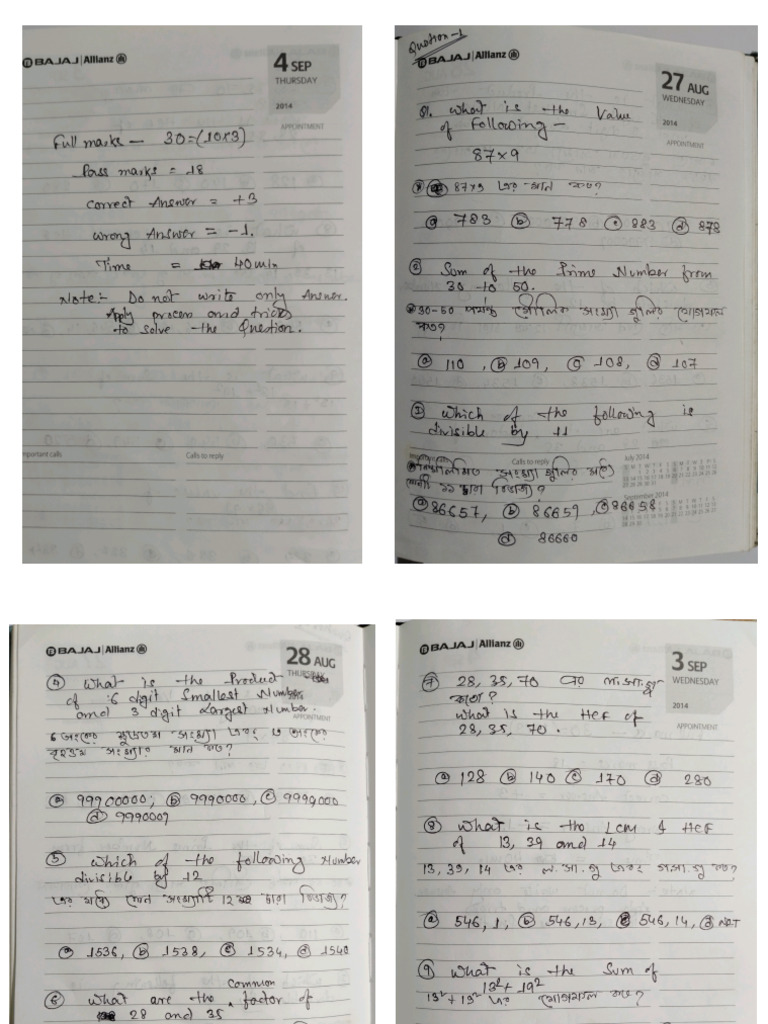 BAJAJ | Allianz
4 SEP
THURSDAY
2014
APPOINTMENT
Full marks — 30=(10×3)
Pass marks = 18
Correct Answer = +3
Wrong Answer = -1.
Time = 40 min
Note:- Do not write only Answer.
Apply process and tricks
to solve the Question.
Important calls
Calls to reply
Question-1
BAJAJ | Allianz
27 AUG
WEDNESDAY
2014
APPOINTMENT
Q1. What is the Value
of Following —
87×9
87×9 এর মান কত?
ⓐ 783 ⓑ 778 ⓒ 883 ⓓ 878
② Sum of the Prime Number from
30 to 50.
30-50 পর্যন্ত মৌলিক সংখ্যা গুলির যোগফল
কত?
ⓐ 110, ⓑ 109, ⓒ 108, ⓓ 107
Which of the following is
divisible by 11
Calls to reply
July 2014
সংখ্যা গুলির মধ্যে
কোনটি ১১ দ্বারা বিভাজ্য?
September 2014
ⓐ 86657, ⓑ 86659, ⓒ 86658
ⓓ 86660
BAJAJ | Allianz
28 AUG
THURSDAY
APPOINTMENT
④ What is the Product
of 6 digit Smallest Number
and 3 digit Largest number.
6 অংকের ক্ষুদ্রতম সংখ্যা এবং ৩ অংকের
বৃহত্তম সংখ্যার মান কত?
ⓐ 99900000; ⓑ 9990000, ⓒ 9999000
ⓓ 9990009
⑤ Which of the following number
divisible by 12
এর মধ্যে কোন সংখ্যাটি 12 দ্বারা বিভাজ্য?
ⓐ 1536, ⓑ 1538, ⓒ 1534, ⓓ 1540
Common
⑥ What are the factor of
28 and 35
BAJAJ | Allianz
3 SEP
WEDNESDAY
2014
APPOINTMENT
⑦ 28, 35, 70 এর ল.সা.গু
কত?
What is the HCF of
28, 35, 70.
ⓐ 128 ⓑ 140 ⓒ 170 ⓓ 280
⑧ What is the LCM & HCF
of 13, 39 and 14
13, 39, 14 এর ল.সা.গু এবং গসাগু কত?
ⓐ 546, 1, ⓑ 546, 13, ⓒ 546, 14, ⓓ NOT
⑨ What is the Sum of
13²+19²
13²+19² এর যোগফল কত?